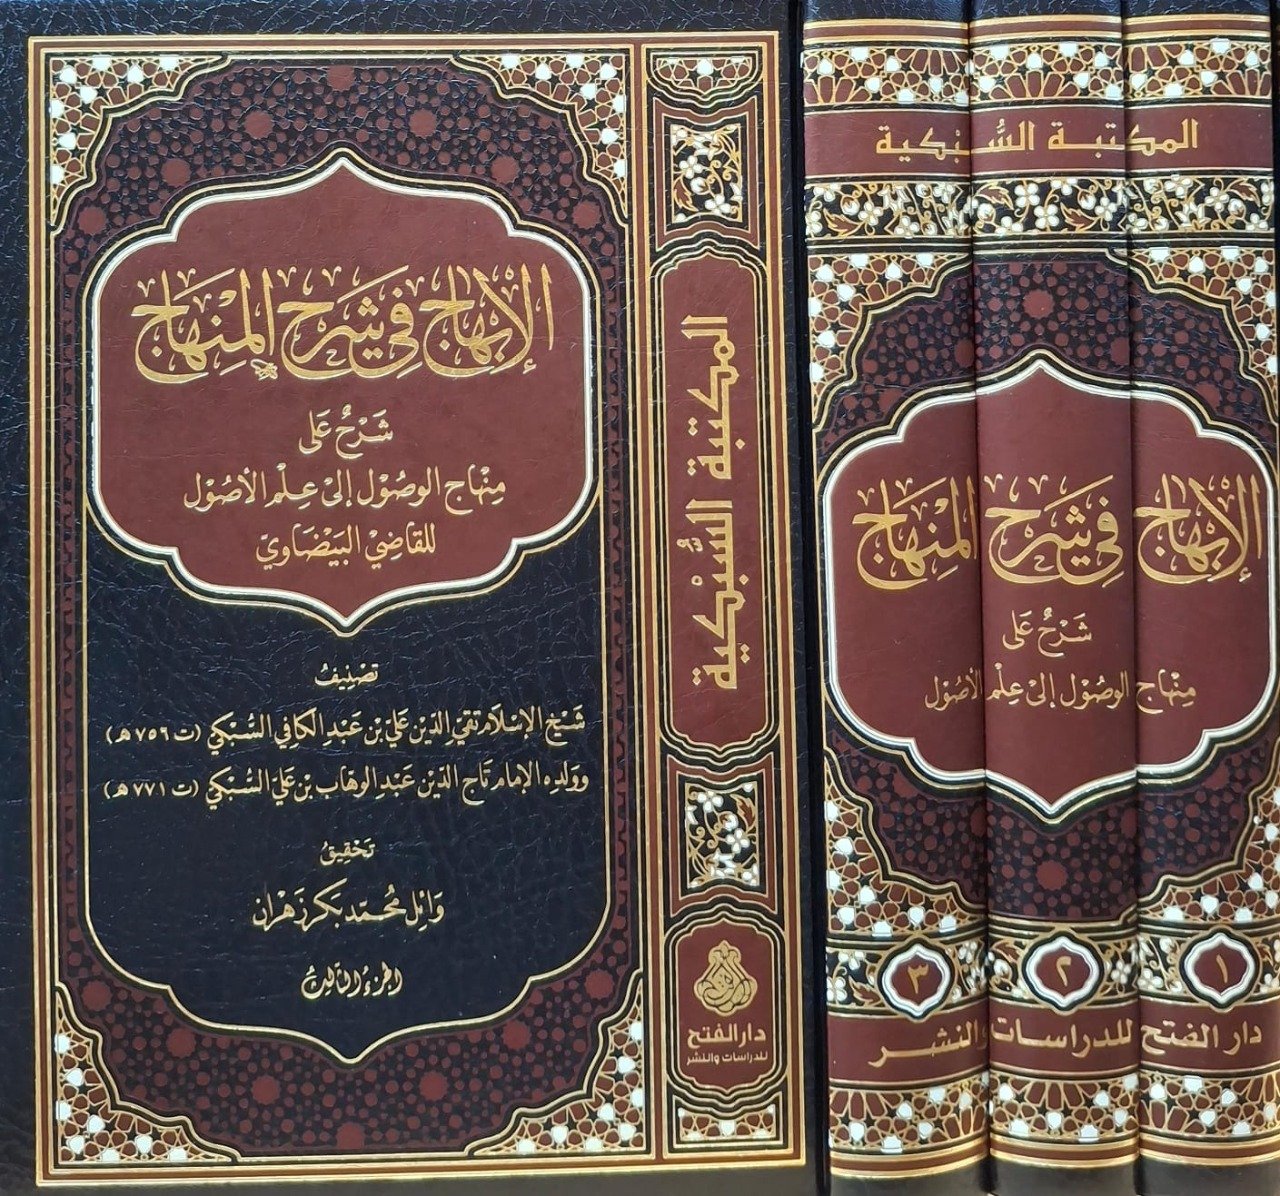 الإبهاج في شرح المنهاج
شَرْحٌ عَلَى
مِنْهاج الوصُوْل إلى عِلْم الأصُوْل
للقاضِي البَيْضَاويّ
تصْنِيفُ
شَيْخ الإسْلام تقيّ الدّيْن عَليّ بْن عَبْدِ الكافي السُّبْكي (ت ٧٥٦ هـ)
وولدِه الإمام تَاج الدّيْن عَبْدِ الوهّاب بْن عَليّ السُّبْكي (ت ٧٧١ هـ)
تَحْقِيقُ
وَائِل مُحَمّد بَكر زَهْران
الجزءُ الثّالِثُ
المكتبة السُّبْكية
دار الفتح
للدراسات والنشر
المكتبة السُّبْكية
الإبهاج في شرح المنهاج
شَرْحٌ عَلَى
مِنْهاج الوصُوْل إلى عِلْم الأصُوْل
١ ٢ ٣
دار الفتح للدراسات والنشر